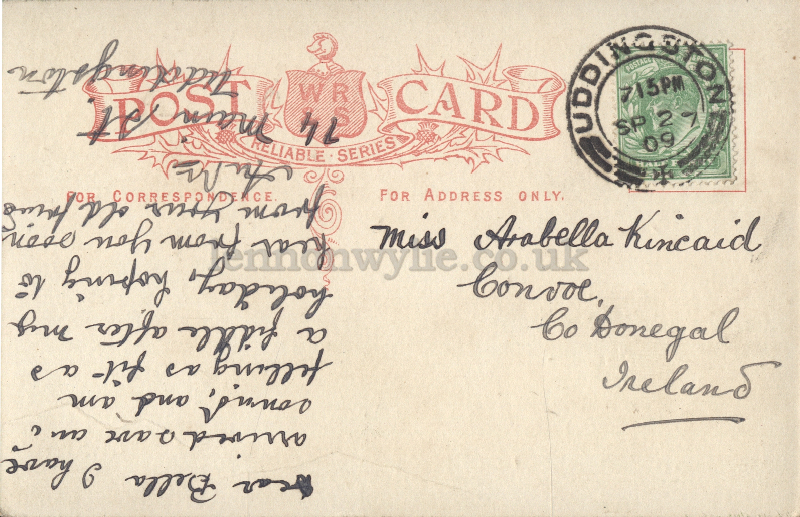 POST CARD
WR & S
RELIABLE SERIES
FOR CORRESPONDENCE.
FOR ADDRESS ONLY.
UDDINGSTON
7 15 PM
SP 27
09
Miss Arabella Kincaid
Convoe,
Co Donegal
Ireland
Dear Bella I have
arrived save an
sound, and am
felling as fit as
a fiddle after my
holiday, hoping to
hear from you soon
from your old friend
74 Main St
Uddingston
lennonwylie.co.uk